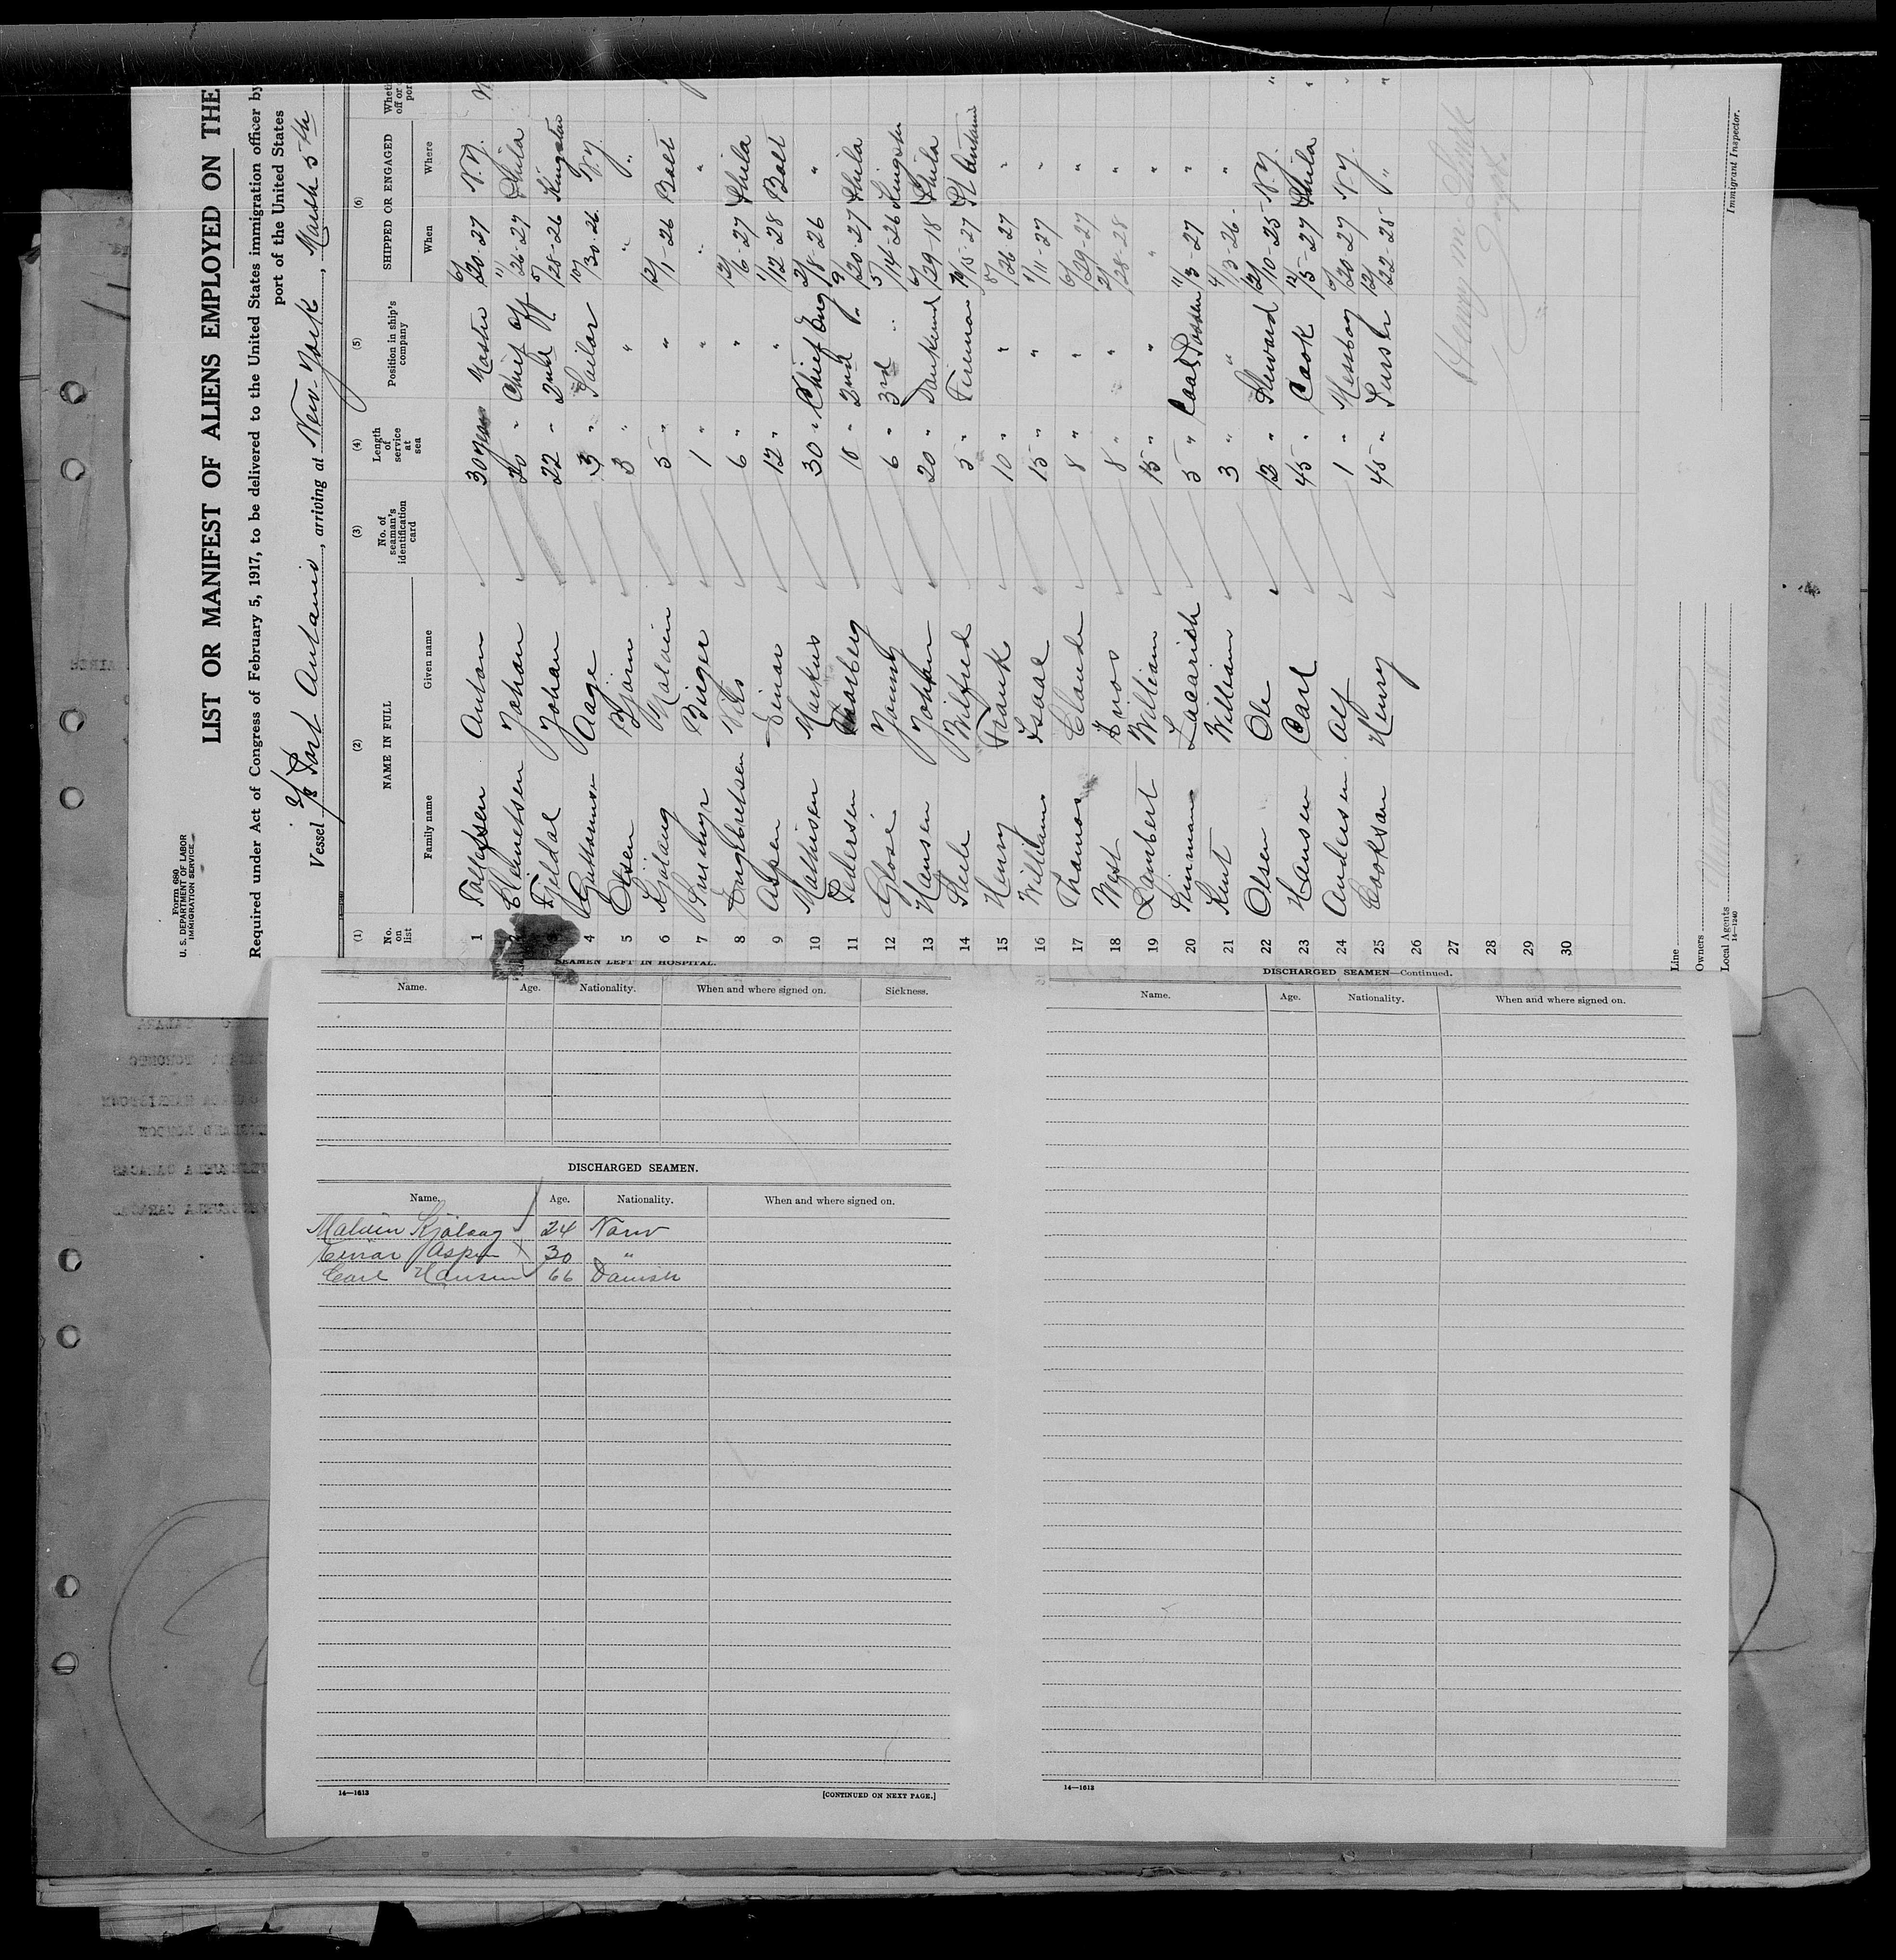 Form 680
U. S. DEPARTMENT OF LABOR
IMMIGRATION SERVICE
LIST OR MANIFEST OF ALIENS EMPLOYED ON THE
Required under Act of Congress of February 5, 1917, to be delivered to the United States immigration officer by
port of the United States
Vessel S/S Port Antonio, arriving at New-York, March 5th
(1) (2) (3) (4) (5) (6)
No. on list NAME IN FULL No. of seaman's identification card Length of service at sea Position in ship's company SHIPPED OR ENGAGED
Family name Given name When Where
1 Anton 30 years Master 6/20-27 N.Y.
2 Clemetsen Johan 20 " Chief Off 11/26-27 Phila
3 Fjeldal Johan 22 " 2nd Off 5/28-26 Kingston
4 Aage 3 " Sailor 10/30-26 N.Y.
5 Olsen Björn 3 " " " "
6 Kjölaug 5 " " 12/1-26 Balt
7 Birger 1 " " " "
8 Nils 6 " " 12/6-27 Phila
9 Aspen Einar 12 " " 1/12-28 Balt
10 Mathisen Markus 30 " Chief Eng 2/8-26 "
11 Pedersen 10 " 2nd " 9/20-27 Phila
12 6 " 3rd " 5/14-26 Kingston
13 Hansen Johan 20 " 6/29-18 Phila
14 Wilfred 5 " Fireman /15-27 Pt Antonio
15 Henry Frank 10 " " 8/26-27 "
16 Williams Isaac 15 " " 1/11-27 "
17 Thomas Claude 8 " " 6/29-27 "
18 West 8 " " 2/28-28 "
19 Lambert William 15 " " " "
20 Zacariah 5 " Coal Passer 11/3-27 "
21 Kent William 3 " " 4/3-26 "
22 Olsen Ole 13 " Steward 12/10-25 N.Y. "
23 Hansen Carl 45 " Cook 12/5-27 Phila "
24 Andersen Alf 1 " Messboy 6/20-27 N.Y. "
25 Cookson Henry 45 " Purser 12/22-25 " "
26
27
28
29
30
Line
Owners
Local Agents
14—1240
Immigrant Inspector.
SEAMEN LEFT IN HOSPITAL.
Name. Age. Nationality. When and where signed on. Sickness.
DISCHARGED SEAMEN.
Name. Age. Nationality. When and where signed on.
Kjölaug 24 Norw
Einar Aspen 30 "
Carl Hansen 66 Danish
14—1613 [CONTINUED ON NEXT PAGE.]
DISCHARGED SEAMEN—Continued.
Name. Age. Nationality. When and where signed on.
14—1613